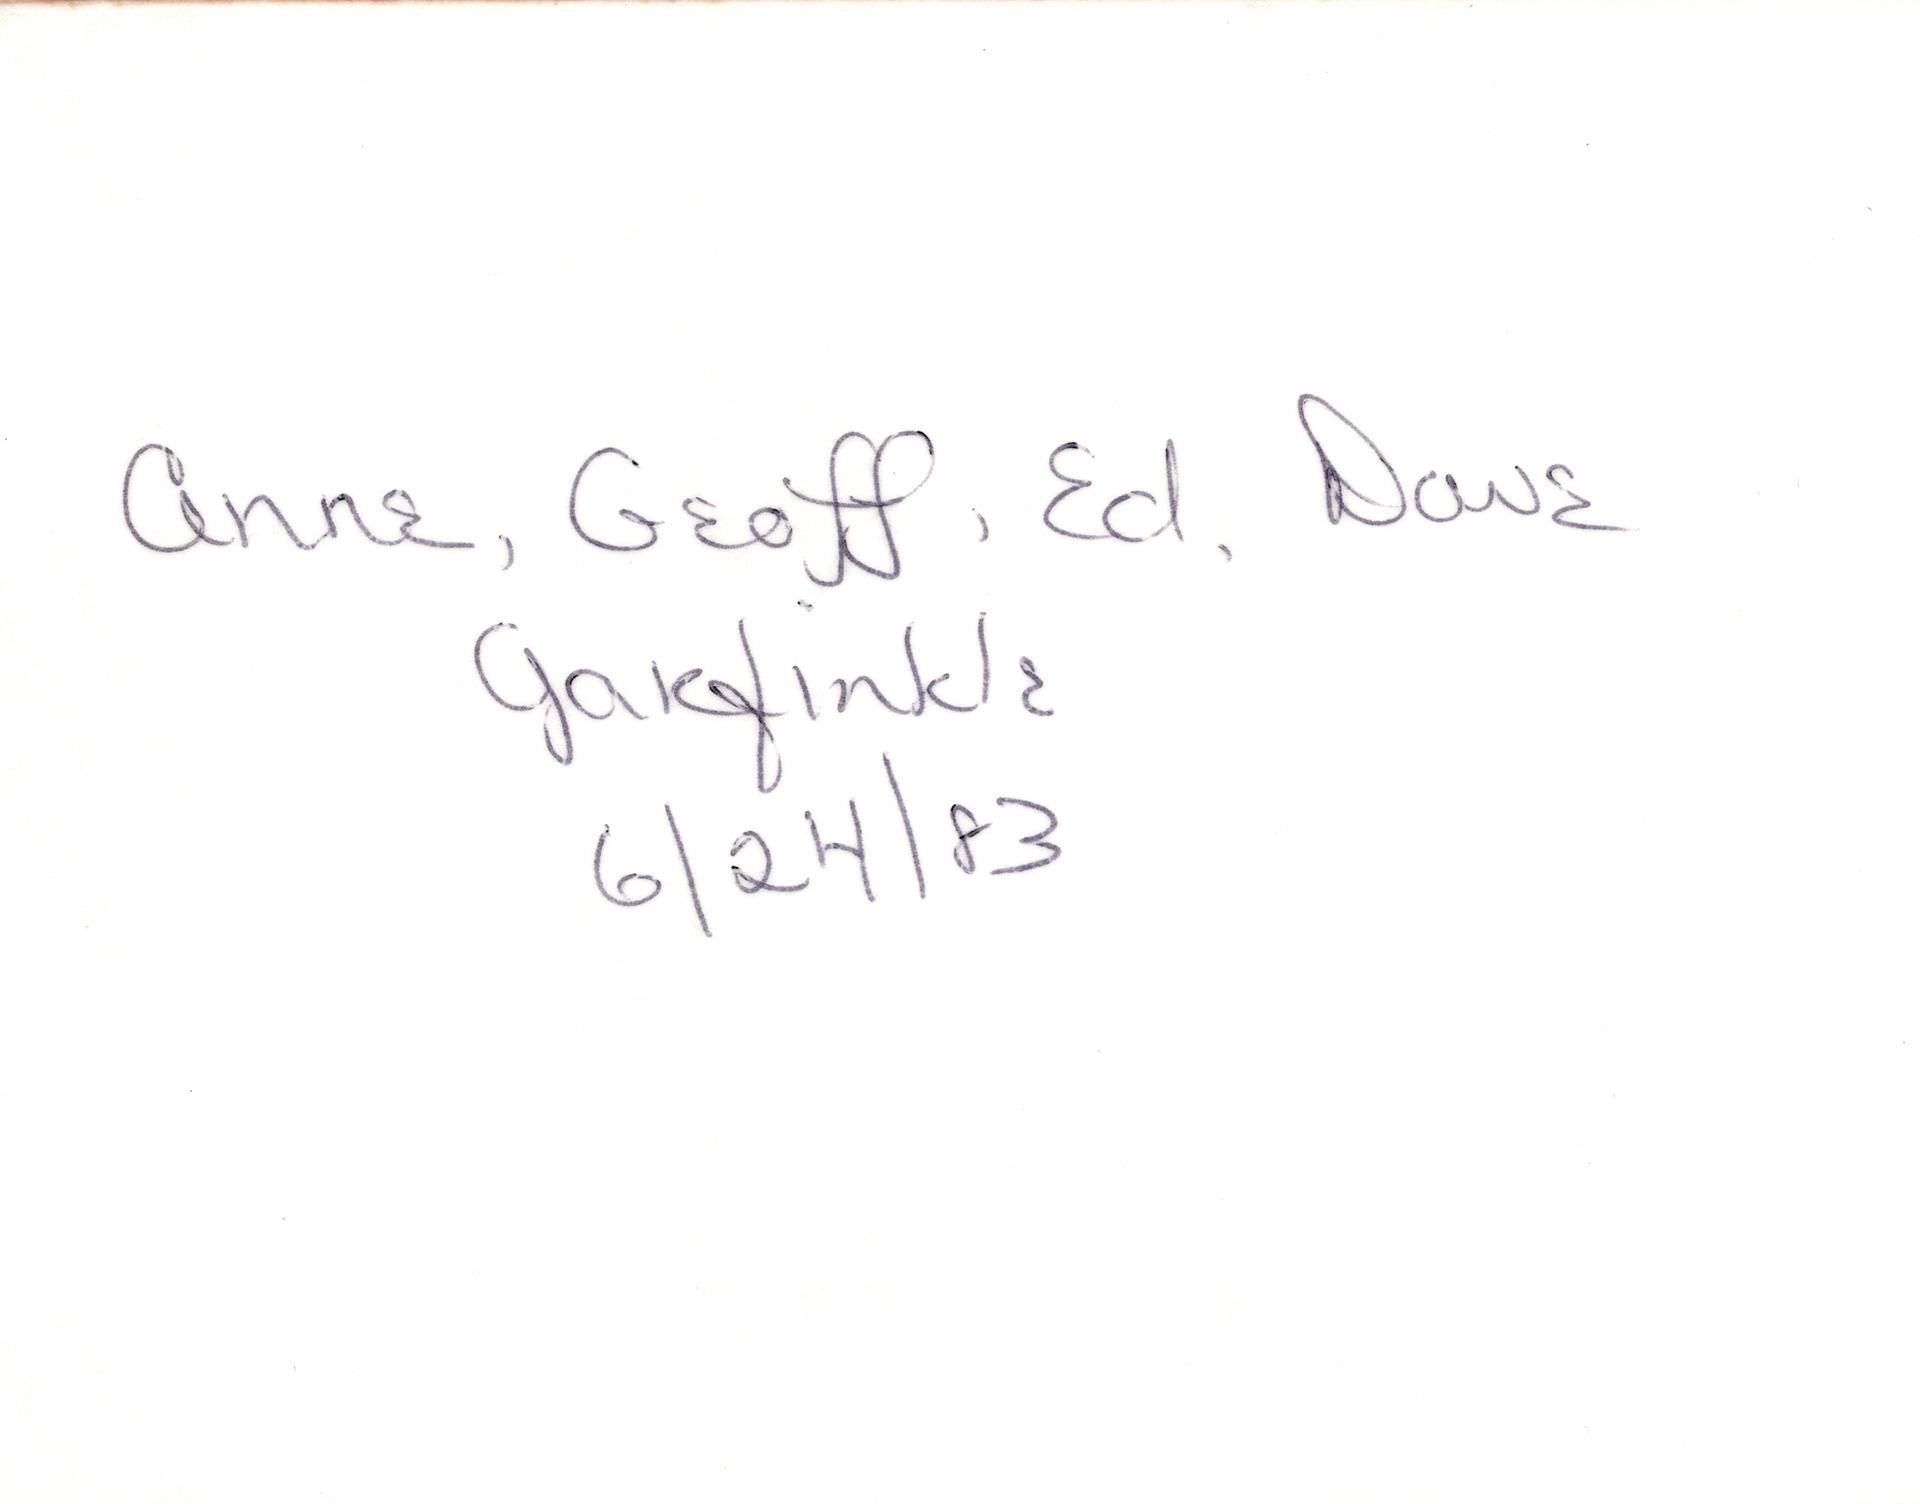 Anne, Geoff, Ed, Dave
Garfinkle
6/24/83